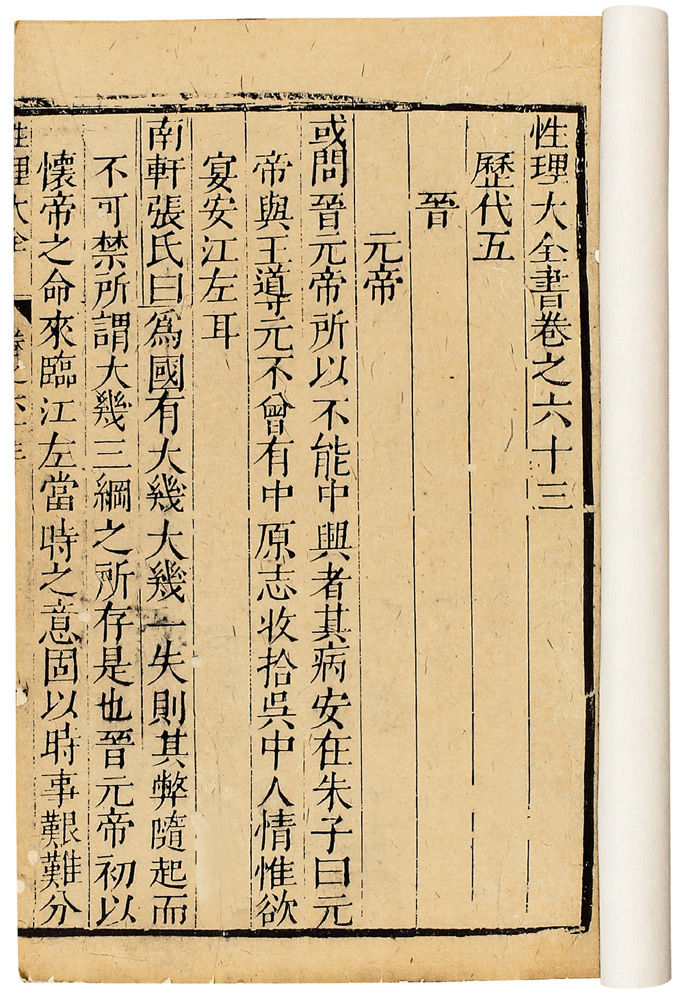 性理大全書卷之六十三
歷代五
晉
元帝
或問晉元帝所以不能中興者其病安在朱子曰元
帝與王導元不曾有中原志收拾吳中人情惟欲
宴安江左耳
南軒張氏曰爲國有大幾大幾一失則其弊隨起而
不可禁所謂大幾三綱之所存是也晉元帝初以
懷帝之命來臨江左當時之意固以時事艱難分
性理大全 卷之六十三